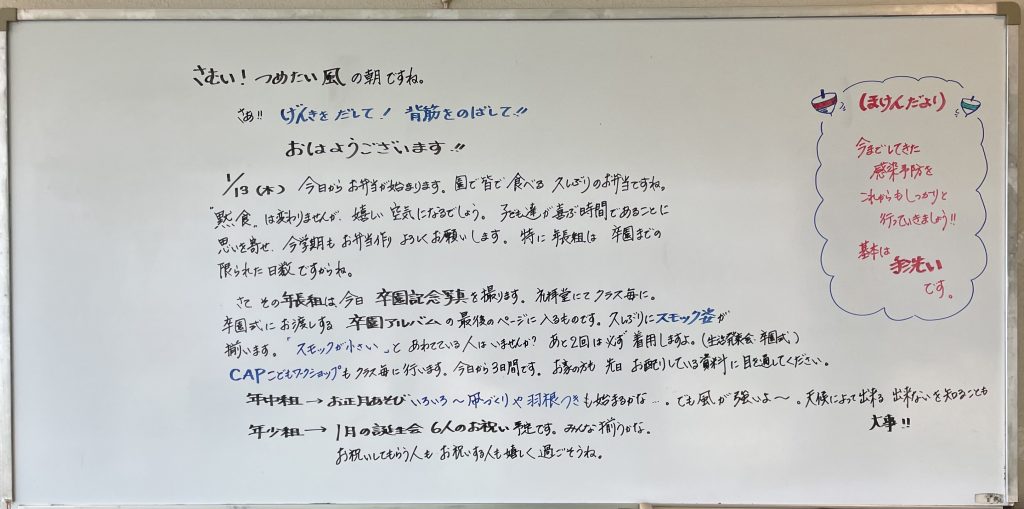 さむい！つめたい風の朝ですね。
さぁ!! げんきをだして！背筋をのばして!!
おはようございます!!
1/13（木）今日からお弁当が始まります。園で皆で食べる久しぶりのお弁当ですね。
"黙食"は変わりませんが、嬉しい空気になるでしょう。子ども達が喜ぶ時間であることに
思いを寄せ、今学期もお弁当作りよろしくお願いします。特に年長組は卒園までの
限られた日数ですからね。
さて その年長組は今日 卒園記念写真を撮ります。礼拝堂にてクラス毎に。
卒園式にお渡しする 卒園アルバムの最後のページに入るものです。久しぶりにスモック姿が
揃います。「スモックが小さい」とあわてている人はいませんか？あと2回は必ず着用しますよ。（生活発表会・卒園式）
CAPこどもワークショップもクラス毎に行います。今日から3日間です。お家の方も先日お配りしている資料に目を通してください。
年中組→お正月あそびいろいろ〜凧づくりや羽根つきも始まるかな…。でも風が強いよ〜。天候によって出来る出来ないを知ることも
大事!!
年少組→1月の誕生会 6人のお祝い予定です。みんな揃うかな。
お祝いしてもらう人もお祝いする人も嬉しく過ごそうね。
（ほけんだより）
今までしてきた
感染予防を
これからもしっかりと
行っていきましょう!!
基本は
手洗い
です。